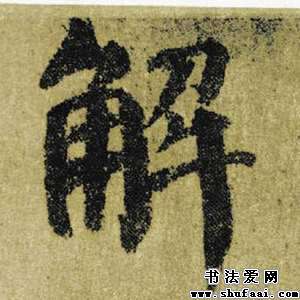 解
书法爱网
www.shufaai.com